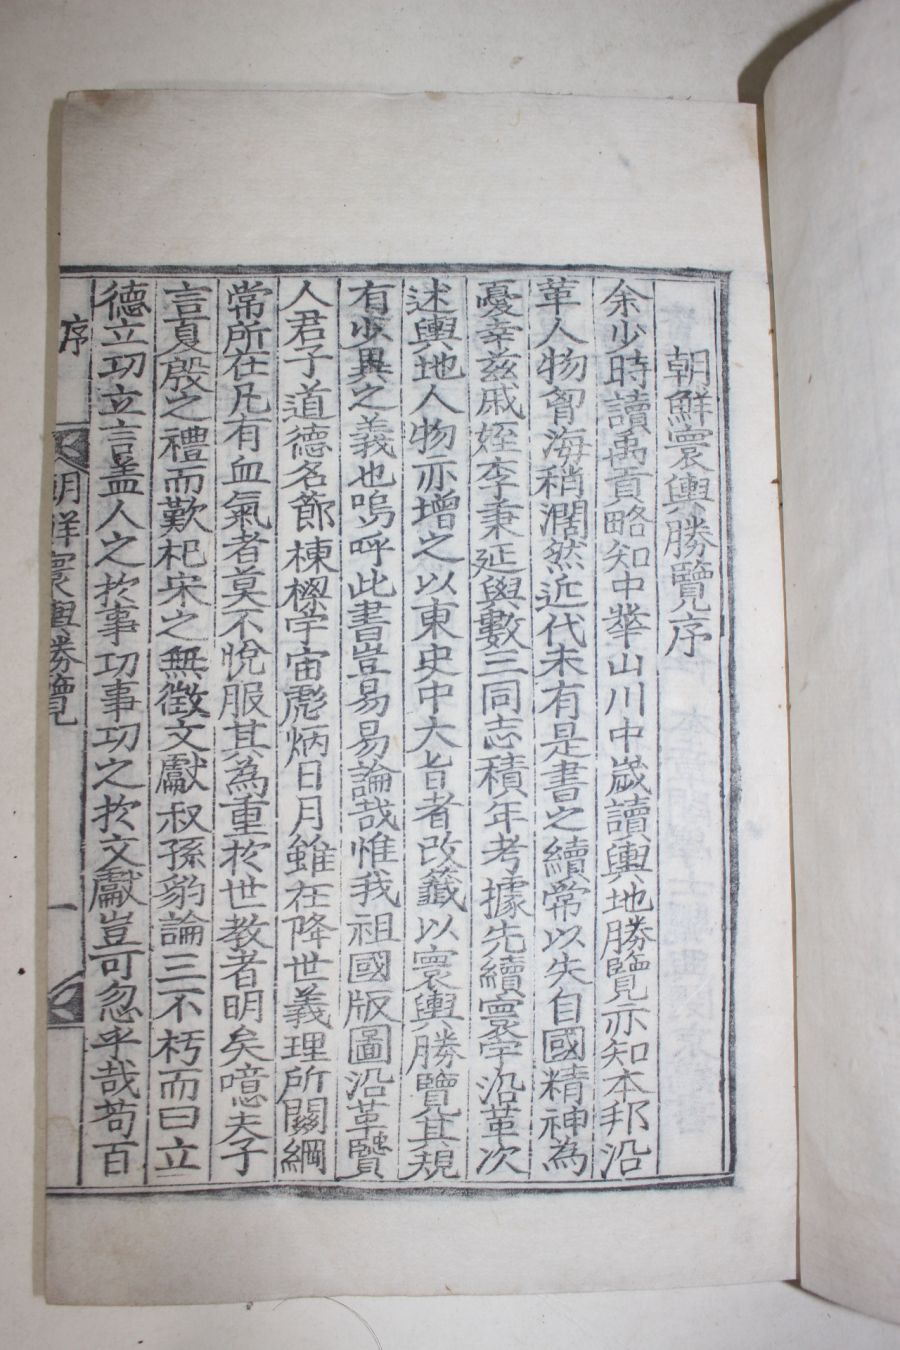 朝鮮寰輿勝覽序
余少時讀禹貢略知中華山川中歲讀輿地勝覽亦知本邦沿
革人物曾海稍濶然近代未有是書之續常以失自國精神為
憂幸玆戚姪李秉延與數三同志積年考據先續寰宇沿革次
述輿地人物亦增之以東史中大旨者改籤以寰輿勝覽其規
有少異之義也嗚呼此書豈易易論哉惟我祖國版圖沿革賢
人君子道德名節棟樑宇宙彪炳日月雖在降世義理所關綱
常所在凡有血氣者莫不悅服其為重於世教者明矣噫夫子
言夏殷之禮而歎杞宋之無徵文獻叔孫豹論三不朽而曰立
德立功立言盖人之於事功事功之於文獻豈可忽乎哉苟百
序 朝鮮寰輿勝覽 一